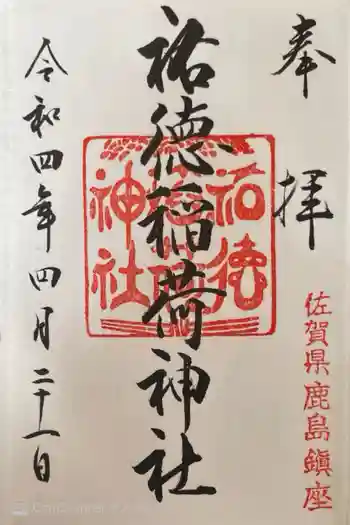 奉拝
佐賀県鹿島鎮座
祐徳稲荷神社
祐徳
稲荷
神社
令和四年四月二十一日